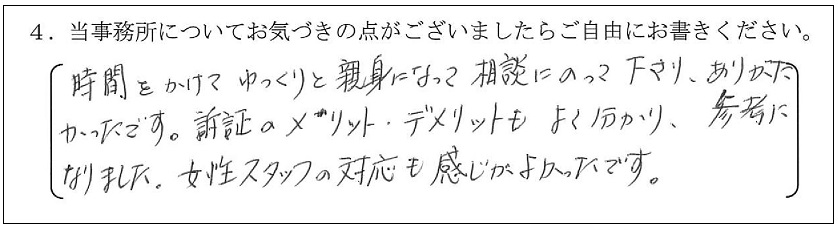 4．当事務所についてお気づきの点がございましたらご自由にお書きください。
時間をかけて ゆっくりと親身になって相談にのって下さり、ありがた
かったです。訴証のメリット・デメリットも よく分かり、参考に
なりました。女性スタッフの対応も感じがよかったです。